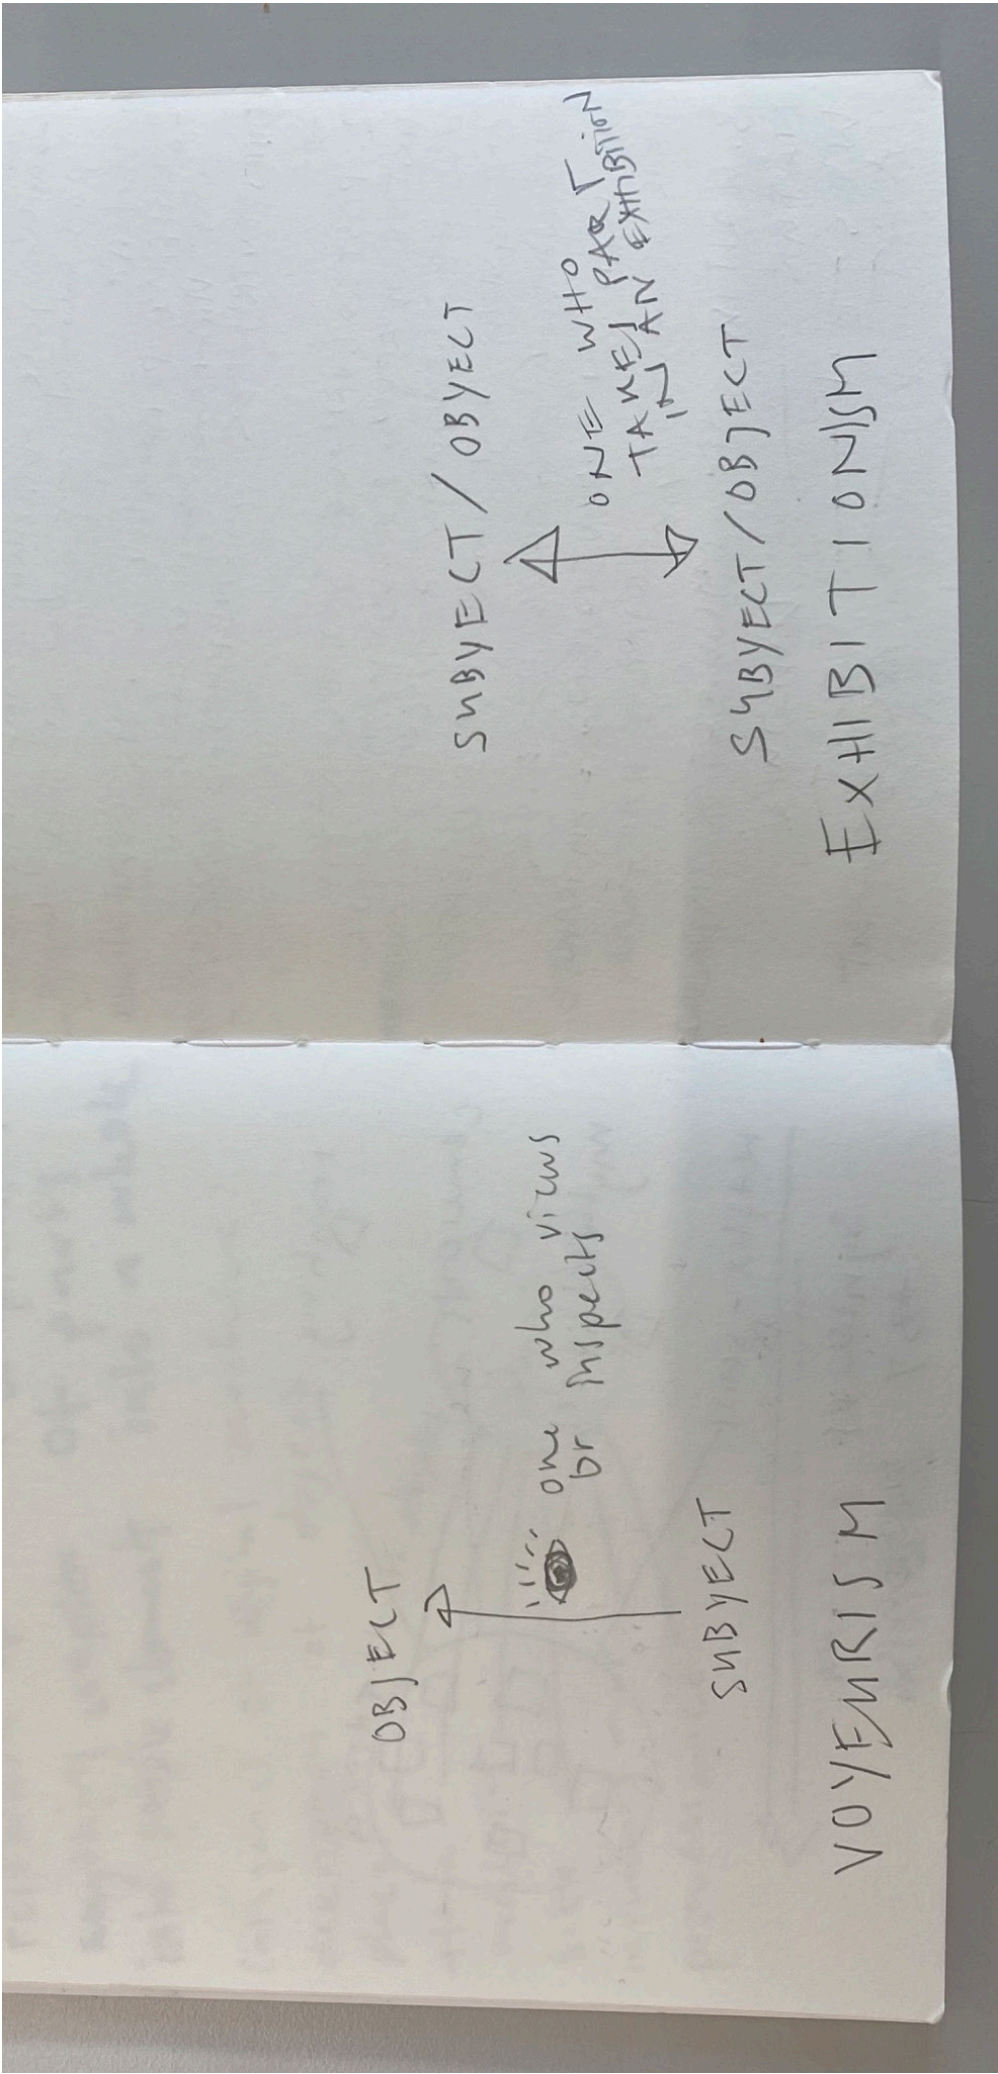 OBJECT
one who views
or inspects
SUBYECT
VOYEURISM
SUBYECT/OBYECT
ONE WHO
TAKES PART
IN AN EXHIBITION
SUBYECT/OBJECT
EXHIBITIONISM